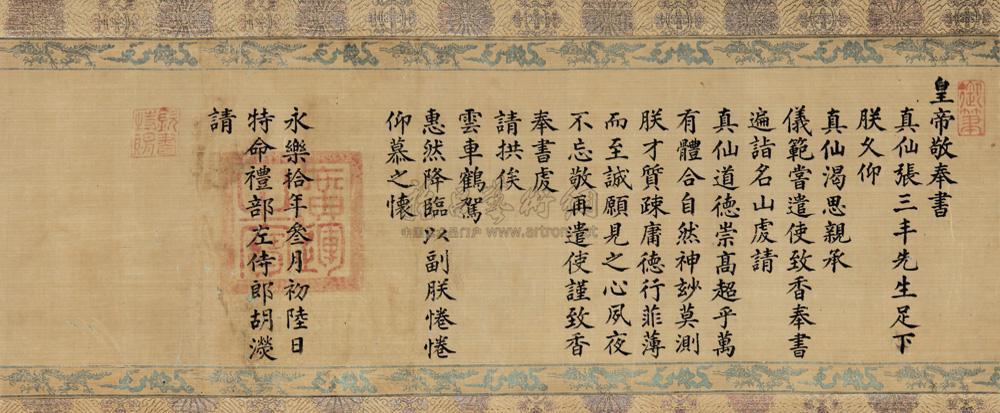 御筆
皇帝敬奉書
真仙張三丰先生足下
朕久仰
真仙渴思親承
儀範嘗遣使致香奉書
遍詣名山虔請
真仙道德崇高超乎萬
有體合自然神妙莫測
朕才質疎庸德行菲薄
而至誠願見之心夙夜
不忘敬再遣使謹致香
奉書虔
請拱俟
雲車鶴駕
惠然降臨以副朕惓惓
仰慕之懷
永樂拾年叄月初陸日
特命禮部左侍郎胡濙
請
www.artron.net